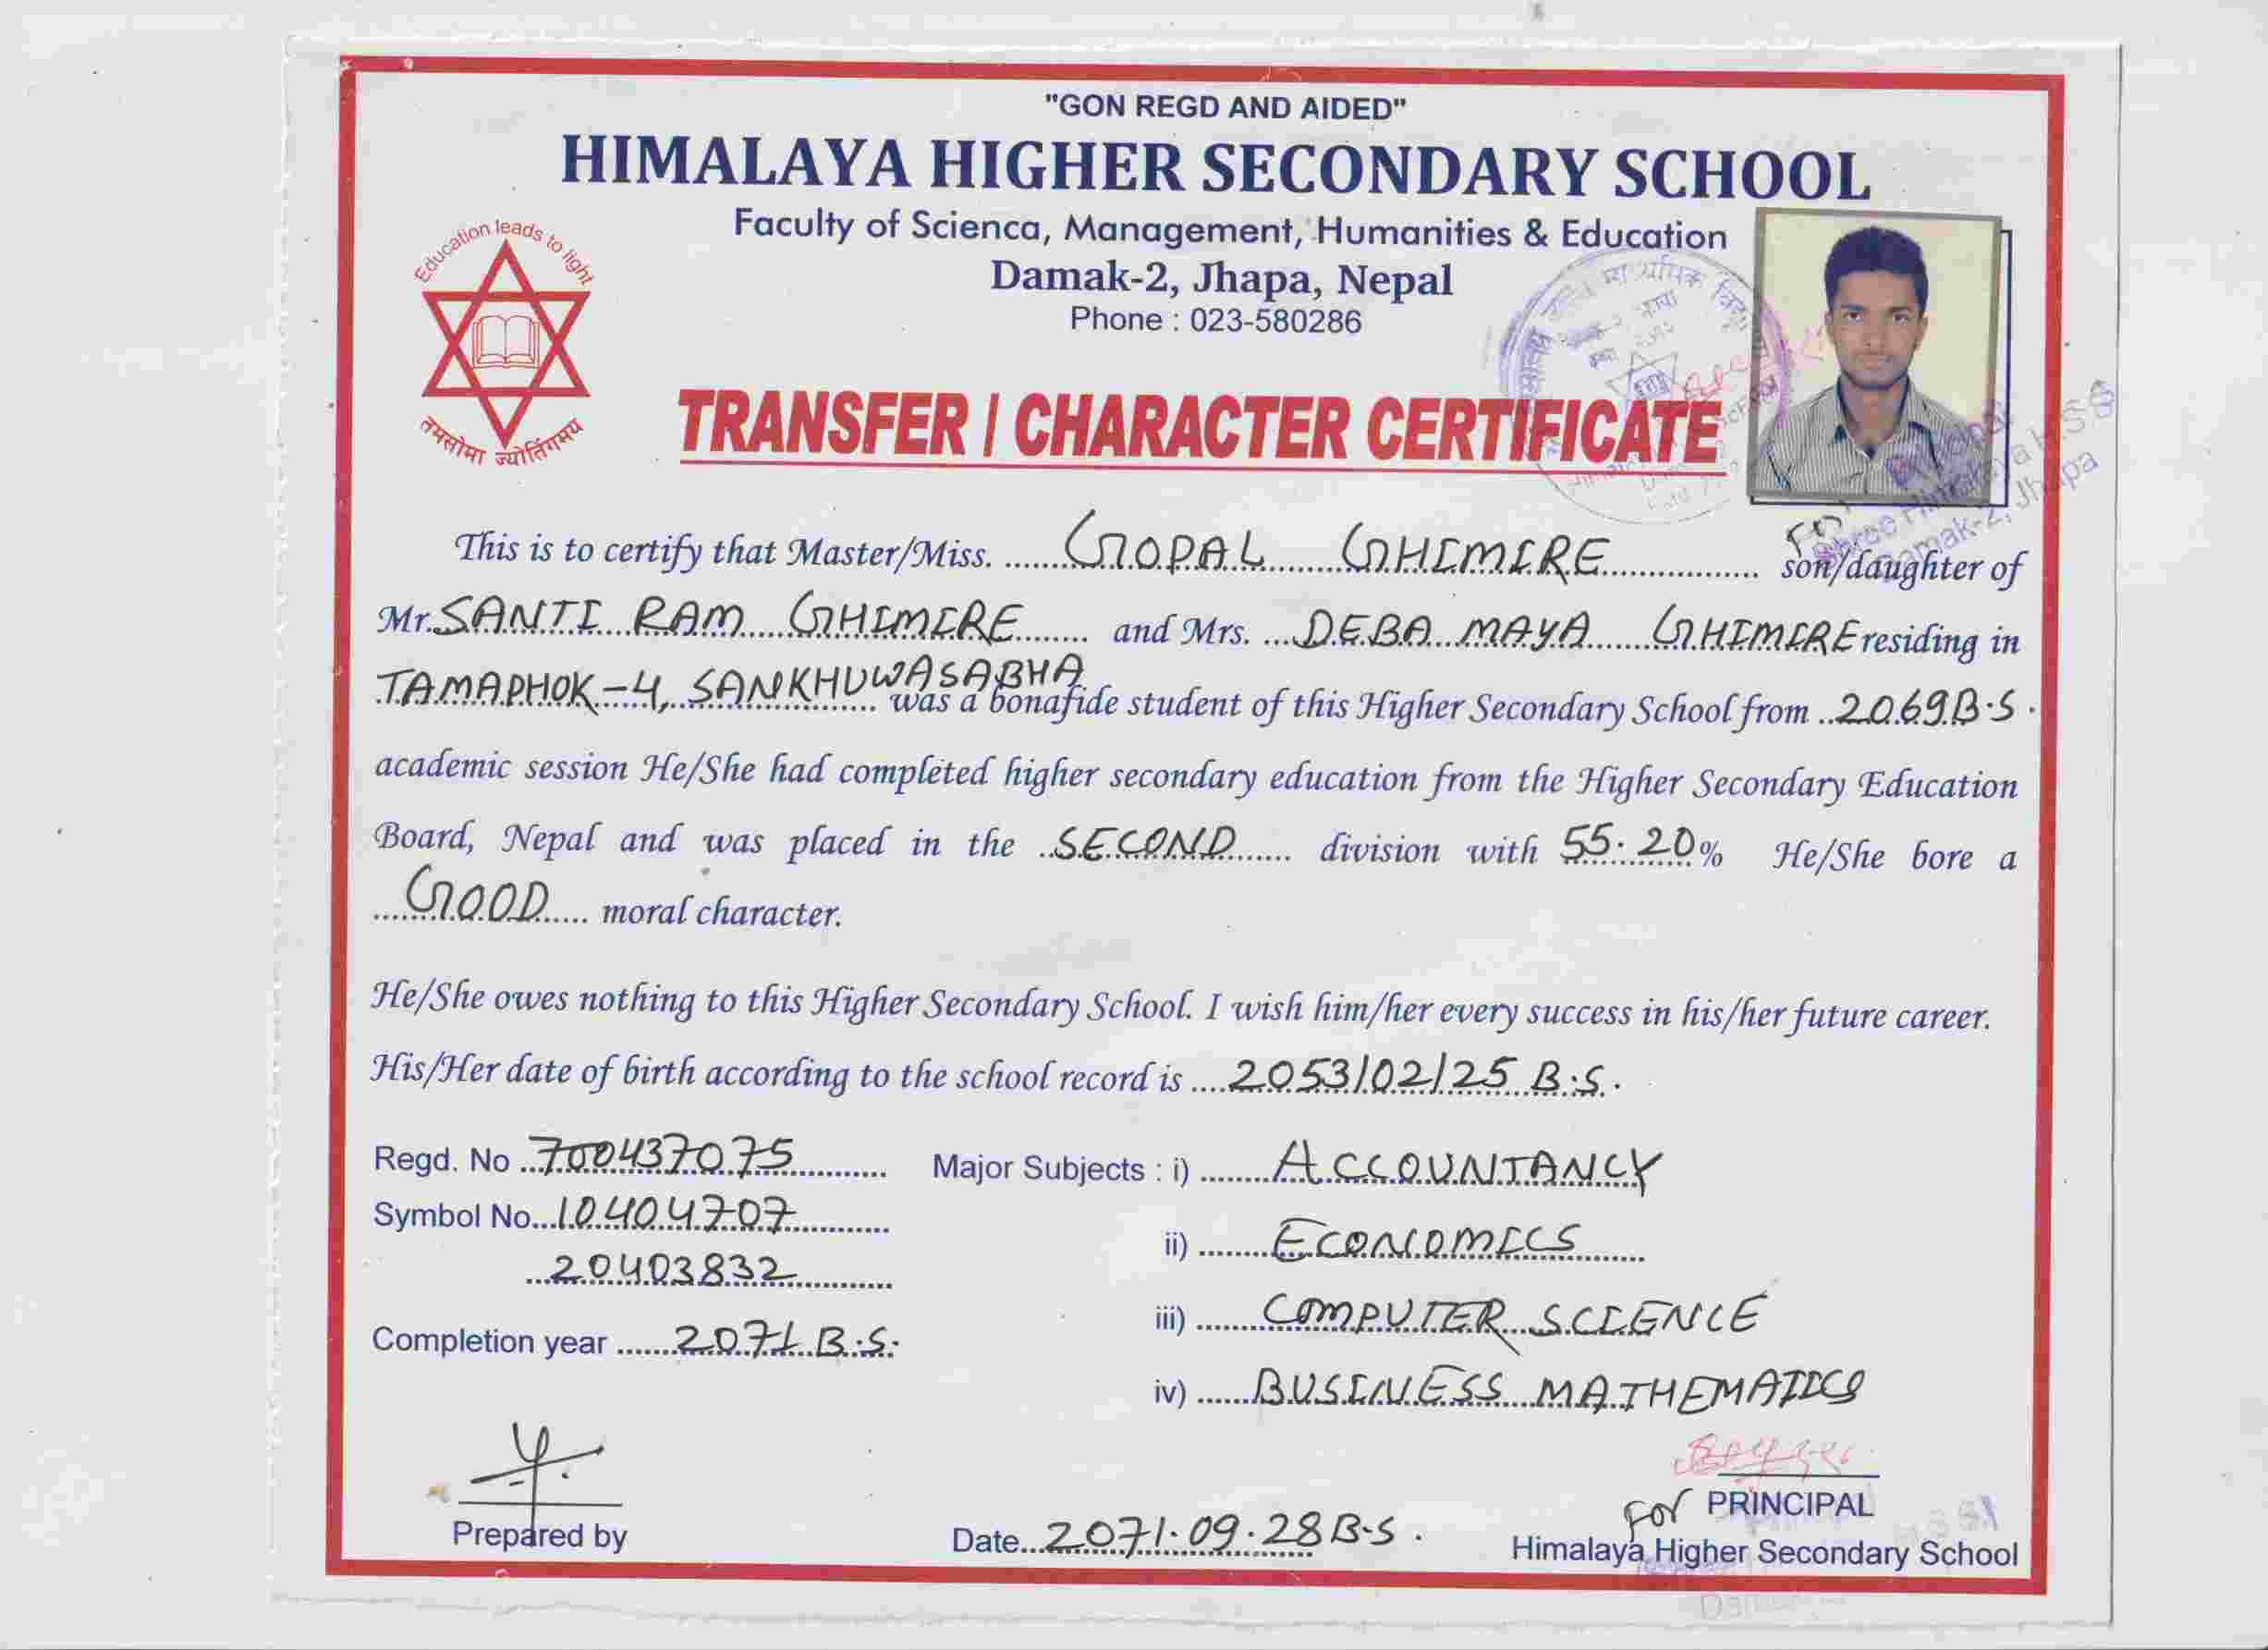 "GON REGD AND AIDED"
HIMALAYA HIGHER SECONDARY SCHOOL
Faculty of Scienca, Management, Humanities & Education
Damak-2, Jhapa, Nepal
Phone : 023-580286
Education leads to light
तमसोमा ज्योतिंगमय
TRANSFER / CHARACTER CERTIFICATE
Principal
Shree Himalaya H.S.S
Damak-2, Jhapa
For
This is to certify that Master/Miss. GOPAL GHIMIRE son/daughter of
Mr. SANTI RAM GHIMIRE and Mrs. DEBA MAYA GHIMIRE residing in
TAMAPHOK-4, SANKHUWASABHA was a bonafide student of this Higher Secondary School from 2069 B.S.
academic session He/She had completed higher secondary education from the Higher Secondary Education
Board, Nepal and was placed in the SECOND division with 55.20% He/She bore a
GOOD moral character.
He/She owes nothing to this Higher Secondary School. I wish him/her every success in his/her future career.
His/Her date of birth according to the school record is 2053/02/25 B.S.
Regd. No 700437075
Symbol No. 10404707
20403832
Completion year 2071 B.S.
Major Subjects : i) ACCOUNTANCY
ii) ECONOMICS
iii) COMPUTER SCIENCE
iv) BUSINESS MATHEMATICS
Prepared by
Date 2071.09.28 B.S.
For PRINCIPAL
Himalaya Higher Secondary School